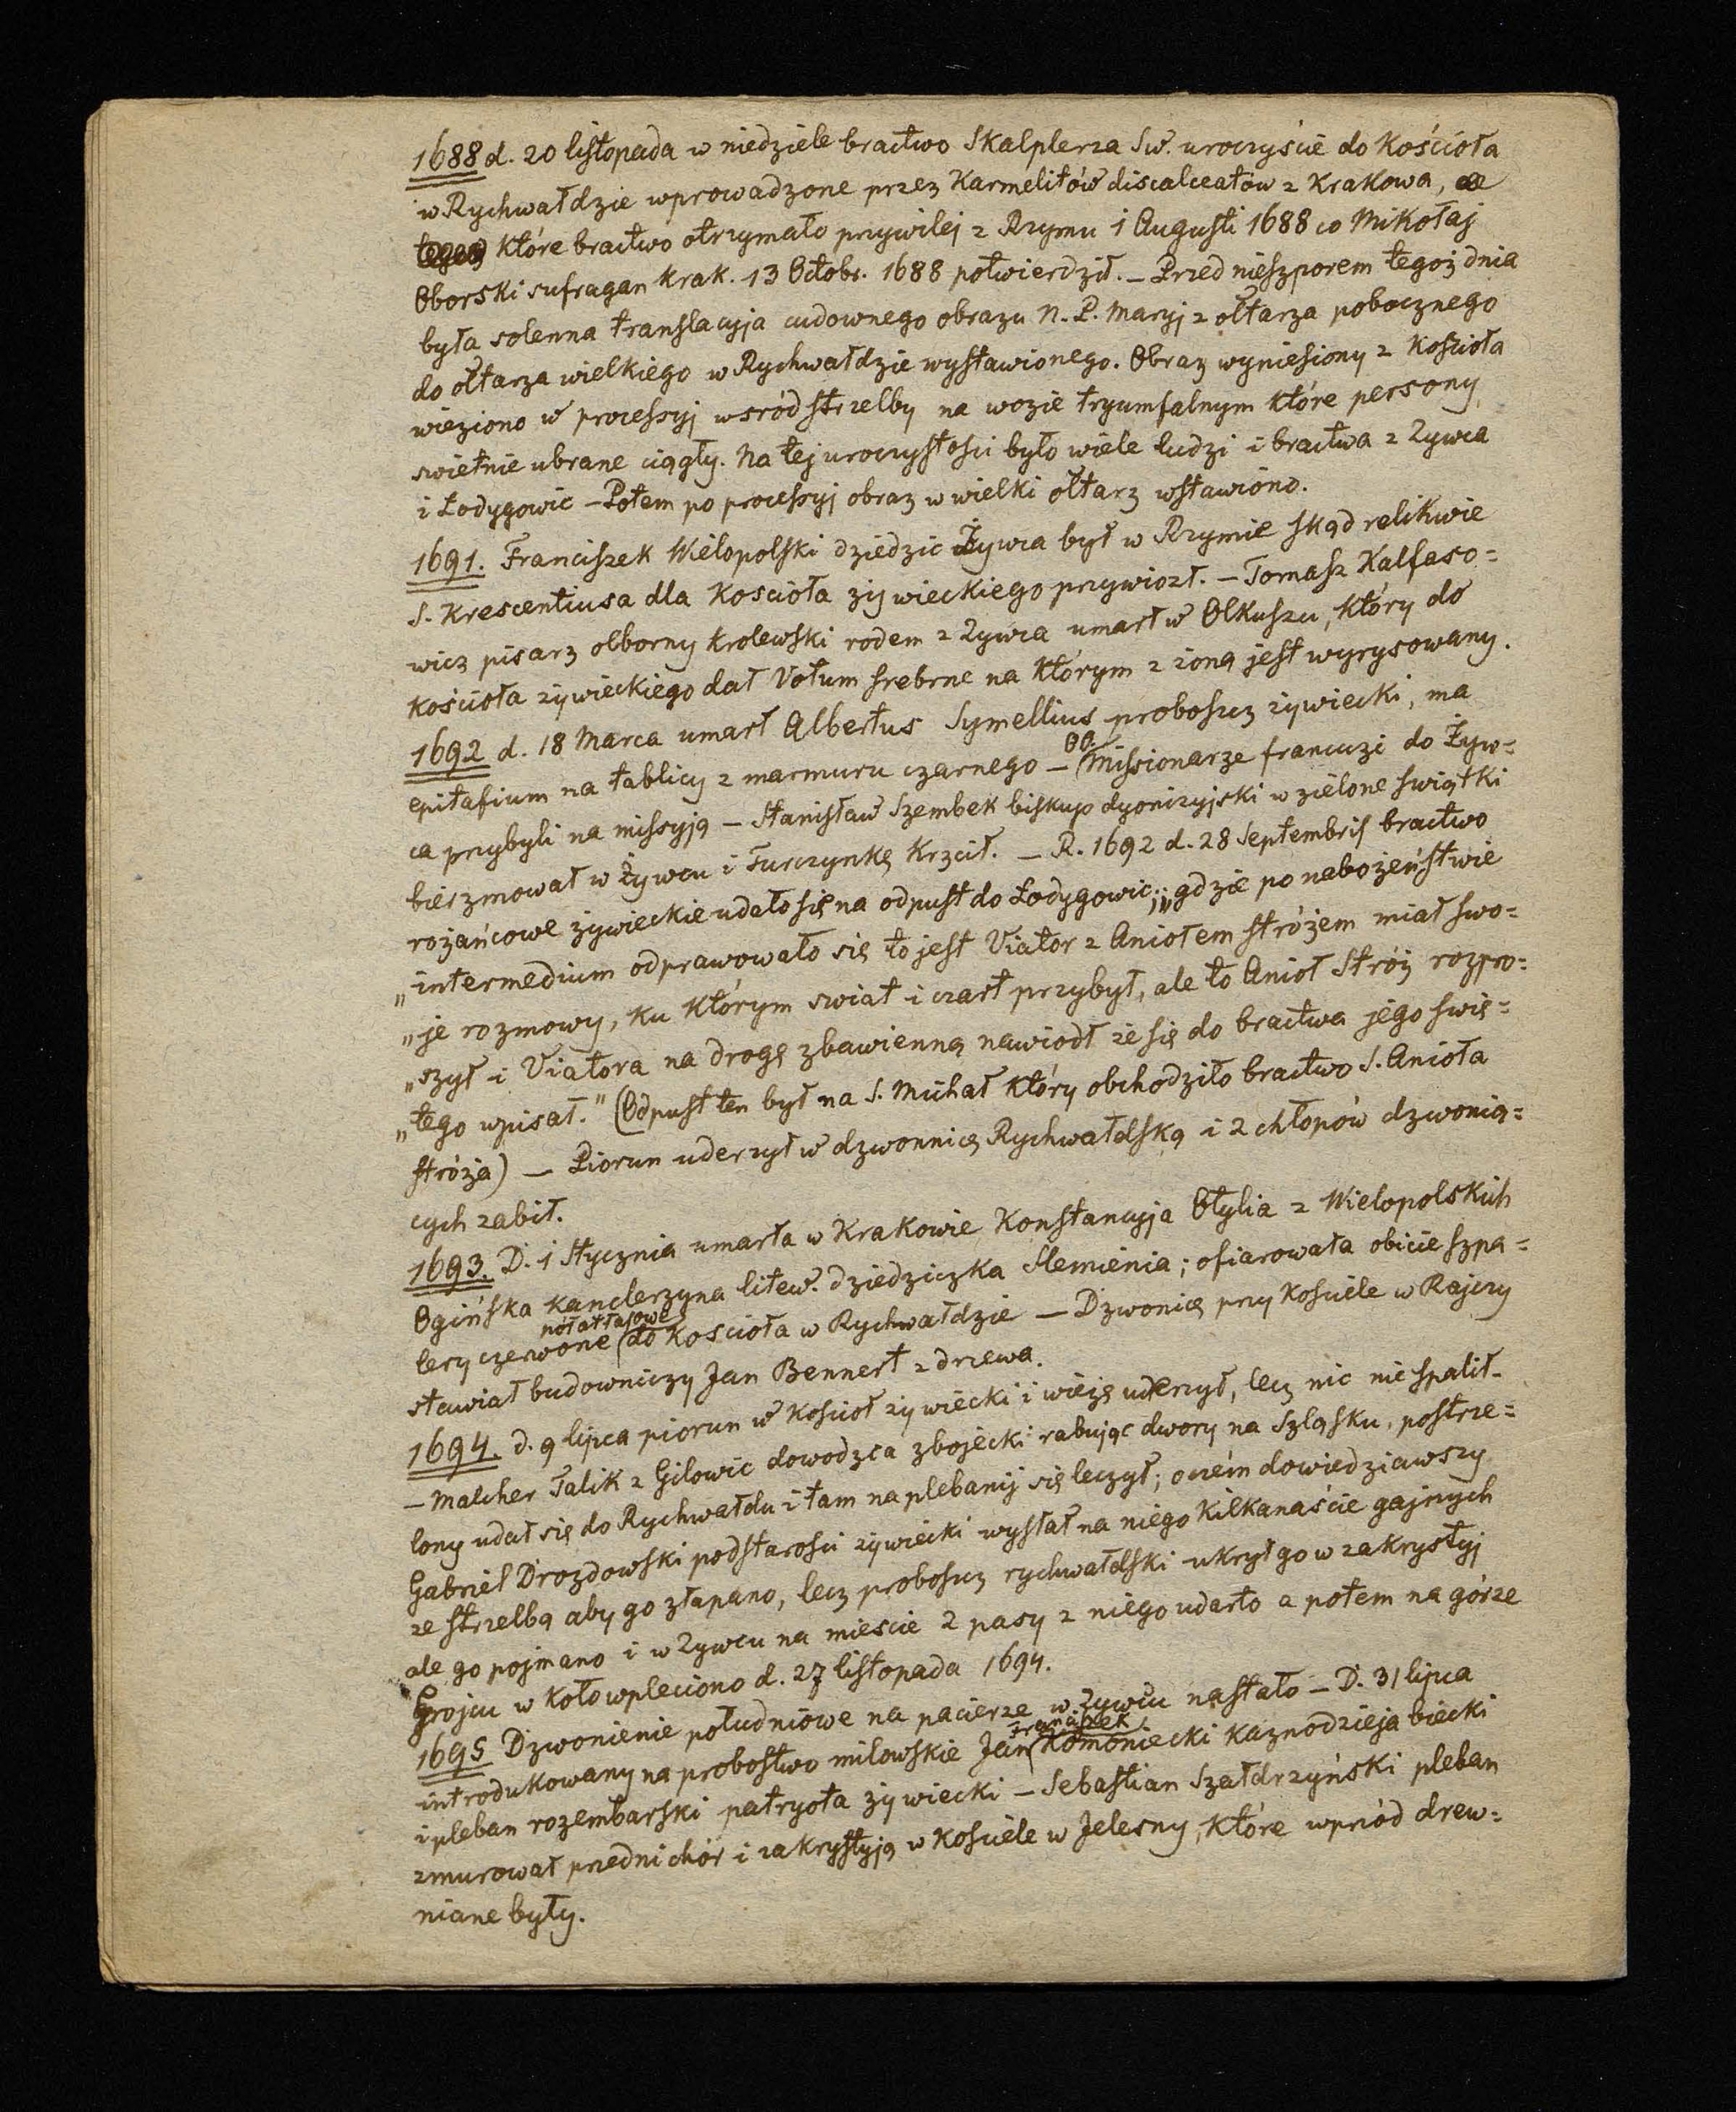 1688 d. 20 listopada w niedziele bractwo Skalplerza Sw. uroczyście do Kościoła
w Rychwałdzie wprowadzone przez Karmelitów discalceatów z Krakowa,
które bractwo otrzymało przywilej z Rzymu 1 Augusti 1688 co Mikołaj
Oborski sufragan krak. 13 Octobr. 1688 potwierdził. – Przed nieszporem tegoż dnia
była solenna translacyja cudownego obrazu N. P. Maryj z ołtarza pobocznego
do ołtarza wielkiego w Rychwałdzie wystawionego. Obraz wyniesiony z Kościoła
wieziono w processyj wsród strzelby na wozie tryumfalnym które persony
swietnie ubrane ciągły. Na tej uroczystosci było wiele ludzi i bractwa z Zywca
i Łodygowic – Potem po processyj obraz w wielki ołtarz wstawiono.
1691. Franciszek Wielopolski dziedzic Żywca był w Rzymie skąd relikwie
S. Krescentiusa dla Kościoła żywieckiego przywiozł. – Tomasz Kalfaso=
wicz pisarz olborny krolewski rodem z Zywca umarł w Olkuszu, który do
kościoła żywieckiego dał Votum srebrne na którym z żoną jest wyrysowany.
1692 d. 18 Marca umarł Albertus Symellius proboszcz żywiecki, ma
epitafium na tablicy z marmuru czarnego – OO. Missionarze francuzi do Żyw=
ca przybyli na missyją – Stanisław Szembek biskup dyonizyjski w zielone swiątki
bierzmował w Żywcu i Turczynkę krzcił. – R. 1692 d. 28 Septembris bractwo
rożańcowe żywieckie udało się na odpust do Łodygowic; „gdzie po nabożeństwie
„intermedium odprawowało się to jest Viator z Aniołem stróżem miał swo=
„je rozmowy, ku którym swiat i czart przybył, ale to Anioł Stróż rozpro=
„szył i Viatora na drogę zbawienną nawiodł że się do bractwa jego swię=
„tego wpisał." (Odpust ten był na S. Michał który obchodziło bractwo S. Anioła
stróża) – Piorun uderzył w dzwonnicę Rychwałdską i 2 chłopów dzwonią=
cych zabił.
1693. D. 1 Stycznia umarła w Krakowie Konstancyja Otylia z Wielopolskich
Ogińska kanclerzyna litew. dziedziczka Slemienia; ofiarowała obicie szpa=
lery czerwone półatłasowe do Kościoła w Rychwałdzie – Dzwonicę przy kosciele w Rajczy
stawiał budowniczy Jan Bennert z drzewa.
1694. d. 9 lipca piorun w Kościoł żywiecki i wieżę uderzył, lecz nic nie spalił.
– Malcher Talik z Gilowic dowodzca zbojecki rabując dwory na Szląsku, postrze=
lony udał się do Rychwałdu i tam na plebanij się leczył; oczém dowiedziawszy
Gabriel Drozdowski podstarosci żywiecki wysłał na niego kilkanaście gajnych
ze strzelbą aby go złapano, lecz proboszcz rychwałdski ukrył go w zakrystyj
ale go pojmano i w Zywcu na miescie 2 pasy z niego udarto a potem na górze
Grojcu w koło wpleciono d. 27 listopada 1694.
1695 Dzwonienie południowe na pacierze w Zywcu nastało – D. 31 lipca
introdukowany na probostwo milowskie Jan Franciszek Komoniecki kaznodzieja biecki
i pleban rozembarski patryota żywiecki – Sebastian Szałdrzyński pleban
zmurował przedni chór i zakrystyją w Kościele w Jelesny, które wprzód drew=
niane były.